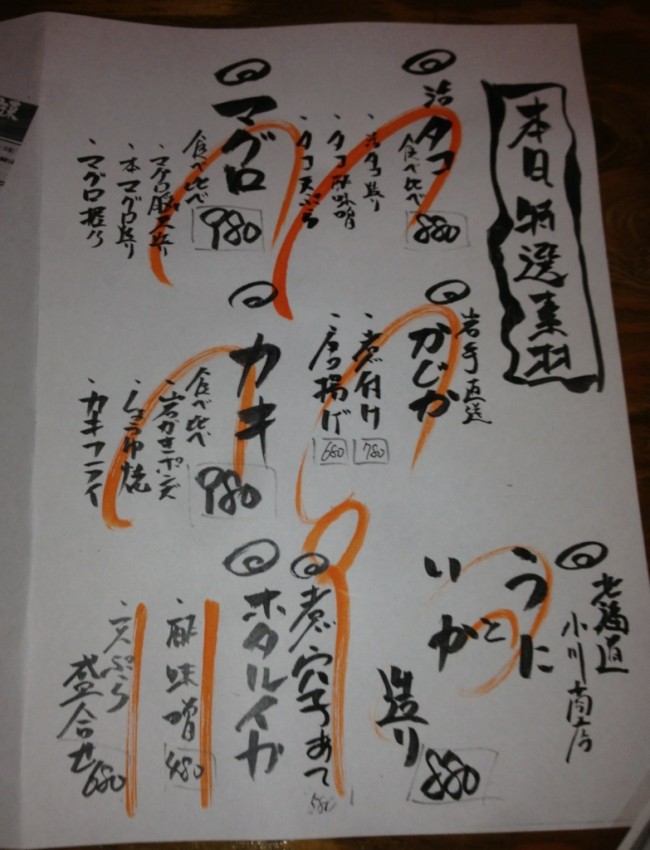 本日特選素材
活タコ
食べ比べ
880
・活タコ造り
・タコ酢味噌
・タコ天ぷら
マグロ
食べ比べ
980
・本マグロ造り
・マグロ握り
岩手直送
かじか
・煮付け
780
・唐揚げ
680
カキ
食べ比べ
980
・岩ガキポンズ
・しょうゆ焼
・カキフライ
北海道
小川商店
うに
と
いか
造り
880
煮穴子あて
580
ホタルイカ
・酢味噌
480
・天ぷら
盛合せ
680